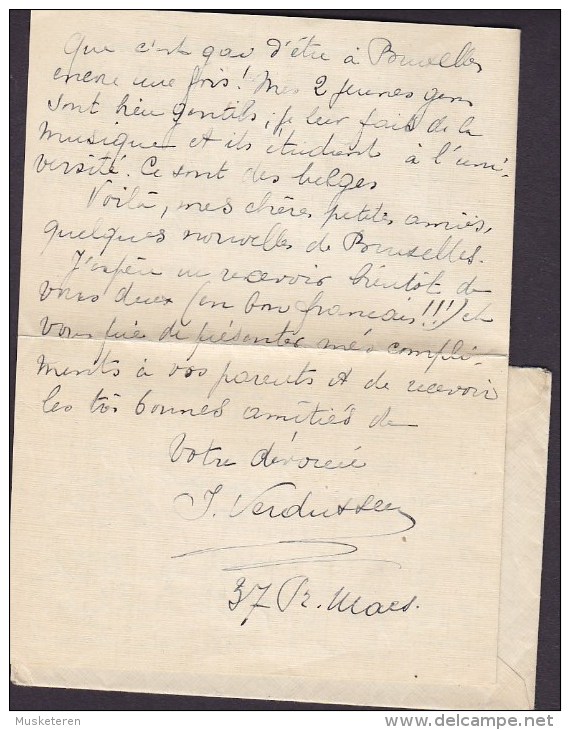 Que c'est gai d'être à Bruxelles
encore une fois! Mes 2 jeunes gens
sont bien gentils, je leur fais de la
musique et ils étudient à l'uni-
versité. Ce sont des belges
Voilà, mes chères petites amies,
quelques nouvelles de Bruxelles.
J'espère en recevoir bientôt de
vous deux (en bon français!!!) et
vous prie de présenter mes compli-
ments à vos parents et de recevoir
les très bonnes amitiés de
Votre dévouée
J. Verdussen
37 Pl. Maes.
Musketeren
delcampe.net